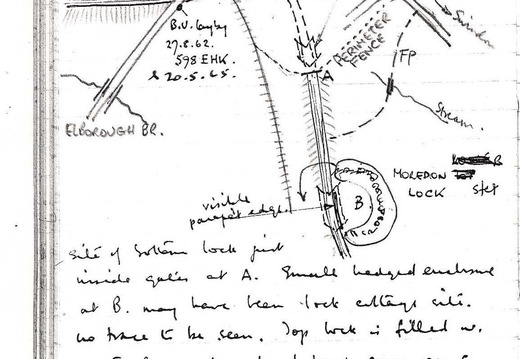 B.V. Layby
27.8.62.
598 EHK.
& 20.5.65.
Swindon
PERIMETER
FENCE
FP
A
ELBOROUGH BR.
Stream.
MOREDON
LOCK
B.
visible
parapet edge.
Site of bottom lock just
inside gates at A. Small hedged enclosure
at B. may have been lock cottage site.
no trace to be seen. Top lock is filled in.